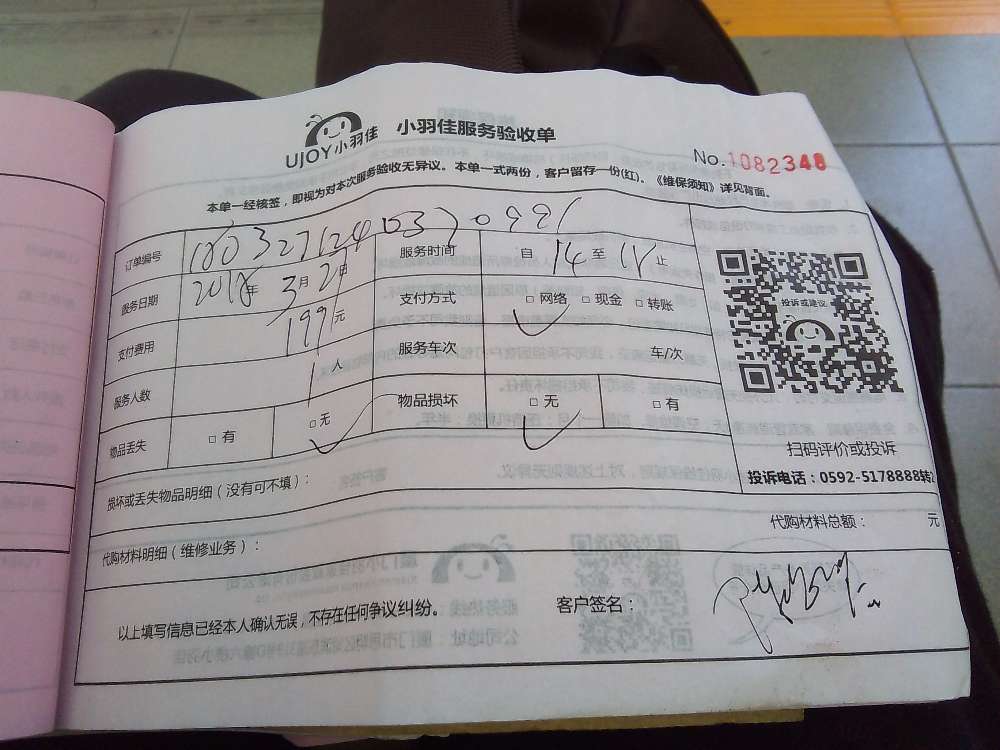 UJOY小羽佳 小羽佳服务验收单
No.1082348
本单一经核签，即视为对本次服务验收无异议。本单一式两份，客户留存一份(红)。《维保须知》详见背面。
订单编号 服务时间 自 14 至 止
服务日期 2018年 3月 日 支付方式 □ 网络 □ 现金 □ 转账
支付费用 199元 服务车次 车/次
服务人数 1人 物品损坏 □ 无 □ 有
物品丢失 □ 有 □ 无
投诉或建议
扫码评价或投诉
投诉电话：0592-5178888转
损坏或丢失物品明细（没有可不填）：
代购材料总额： 元
代购材料明细（维修业务）：
以上填写信息已经本人确认无误，不存在任何争议纠纷。 客户签名：